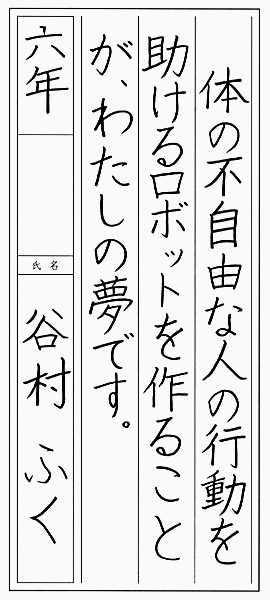 体の不自由な人の行動を
助けるロボットを作ること
が、わたしの夢です。
六年
氏名
谷村 ふく